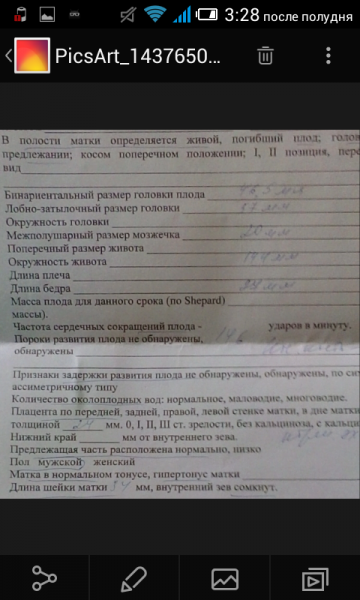 3:28 после полудня
PicsArt_1437650...
В полости матки определяется живой, погибший плод; голов
предлежании; косом поперечном положении; I, II позиция, пере
вид
Бипариентальный размер головки плода 46,5 мм
Лобно-затылочный размер головки 57 мм
Окружность головки
Межполушарный размер мозжечка 20 мм
Поперечный размер живота
Окружность живота 144 мм
Длина плеча
Длина бедра 34 мм
Масса плода для данного срока (по Shepard)
массы).
Частота сердечных сокращений плода - 146 ударов в минуту.
Пороки развития плода не обнаружены,
обнаружены
Признаки задержки развития плода не обнаружены, обнаружены, по си
ассиметричному типу
Количество околоплодных вод: нормальное, маловодие, многоводие.
Плацента по передней, задней, правой, левой стенке матки, в дне матки
толщиной 24 мм. 0, I, II, III ст. зрелости, без кальциноза, с кальци
Нижний край мм от внутреннего зева.
Предлежащая часть расположена нормально, низко
Пол мужской женский
Матка в нормальном тонусе, гипертонус матки
Длина шейки матки 34 мм, внутренний зев сомкнут.